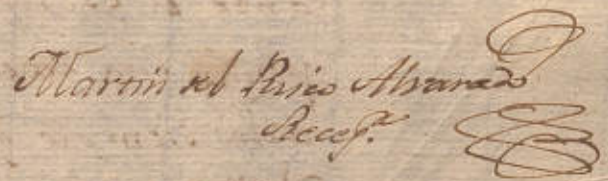 Martin del Risco Alvarado
Recep.r